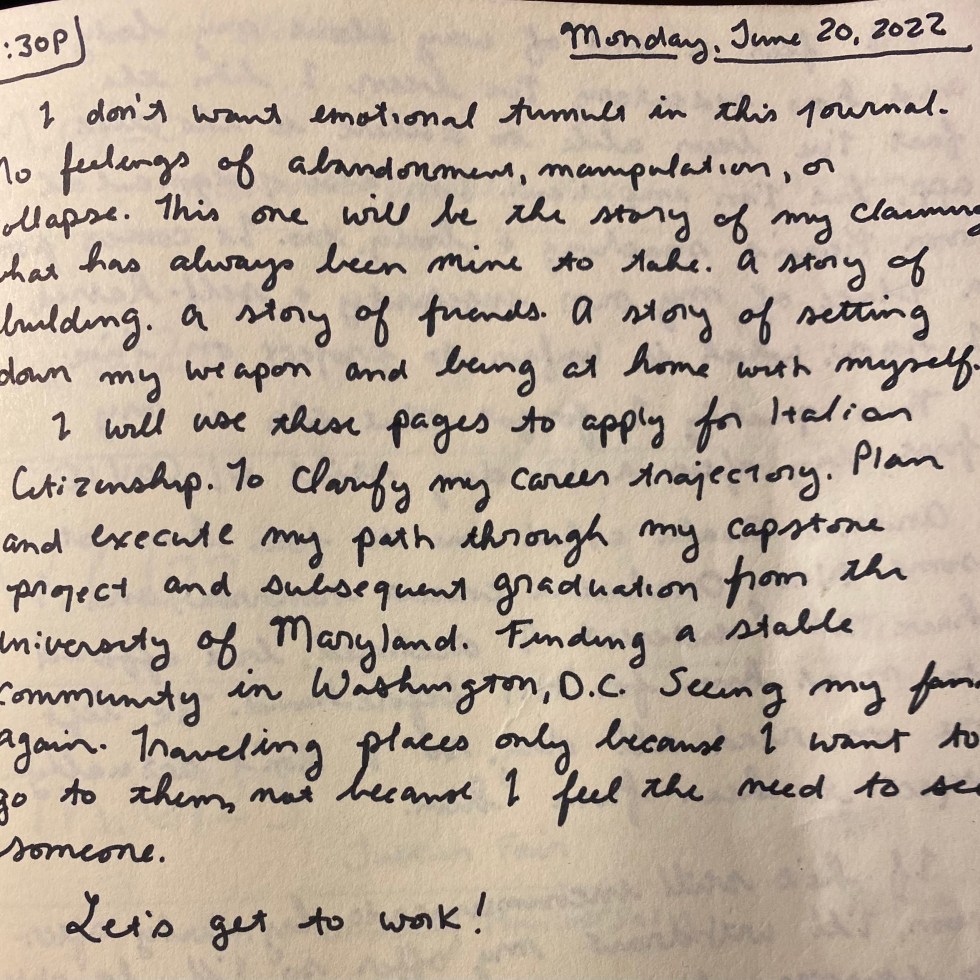 :30P Monday, June 20, 2022
I don't want emotional tumult in this journal.
No feelings of abandonment, manipulation, or
ollapse. This one will be the story of my claiming
hat has always been mine to take. A story of
building. A story of friends. A story of setting
down my weapon and being at home with myself.
I will use these pages to apply for Italian
Citizenship. To Clarify my career trajectory. Plan
and execute my path through my capstone
project and subsequent graduation from the
University of Maryland. Finding a stable
Community in Washington, D.C. Seeing my fam
again. Traveling places only because I want to
go to them, not because I feel the need to see
someone.
Let's get to work!